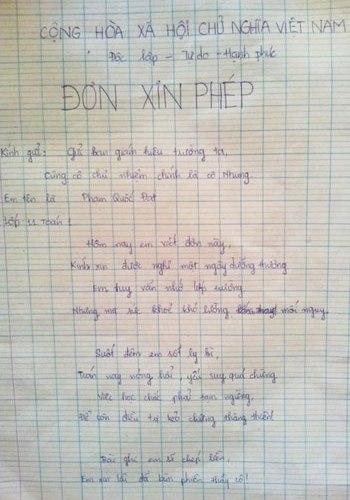 CỘNG HÒA XÃ HỘI CHỦ NGHĨA VIỆT NAM
Độc lập - Tự do - Hạnh phúc
ĐƠN XIN PHÉP
Kính gửi: Gửi ban giám hiệu trường ta,
Cùng cô chủ nhiệm chính là cô Nhung.
Em tên là Phạm Quốc Đạt
Lớp 11 Toán 1
Hôm nay em viết đơn này,
Kính xin được nghỉ một ngày dưỡng thương
Em tuy vấn nhớ lớp trường
Nhưng mà sức khoẻ khó lường, mới nguy.
Suốt đêm em sốt ly bì,
Toán vay nóng hổi, yếu suy quá chừng
Việc học chắc phải tạm ngừng,
Để còn điều trị kẻo chừng thăng thiên!
Bài ghi em sẽ chép liền,
Em xin lỗi đã làm phiền thầy cô!